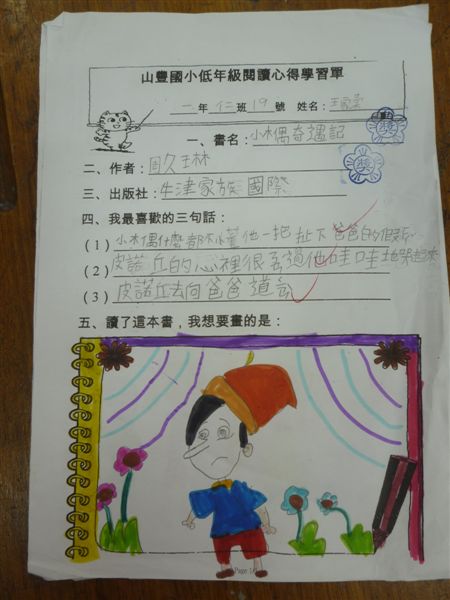 山豐國小低年級閱讀心得學習單
一年仁班19號 姓名：王
一、書名：小木偶奇遇記
獎
二、作者：周久琳
獎
三、出版社：牛津家族國際
四、我最喜歡的三句話：
(1) 小木偶什麼都不懂他一把扯下爸爸的假髮
(2) 皮諾丘的心裡很難過他哇哇地哭起來
(3) 皮諾丘去向爸爸道
五、讀了這本書，我想要畫的是：
Page 1